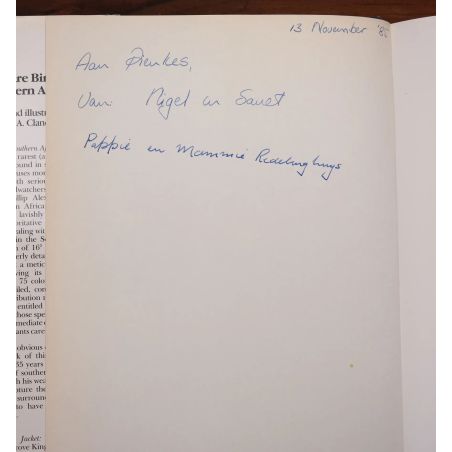 13 November '85
Aan Dienkes,
Van: Nigel en Sanet
Pappie en Mammie Redelinghuys
re Bir
ern A
d illustr
A. Clanc
outhern A
rarest (a
ound in
uses mor
th serio
dwatchers
llip Ale
n Africa
lavishly
oritative
ealing wit
in the S
n of 16
erly deta
a metic
ving its
75 colo
iled, con
ribution
entitled
hose spe
mmediate
ants care
obvious
k of this
35 years
of southe
h his wea
pture the
surroun
to have
Jacket:
rove King